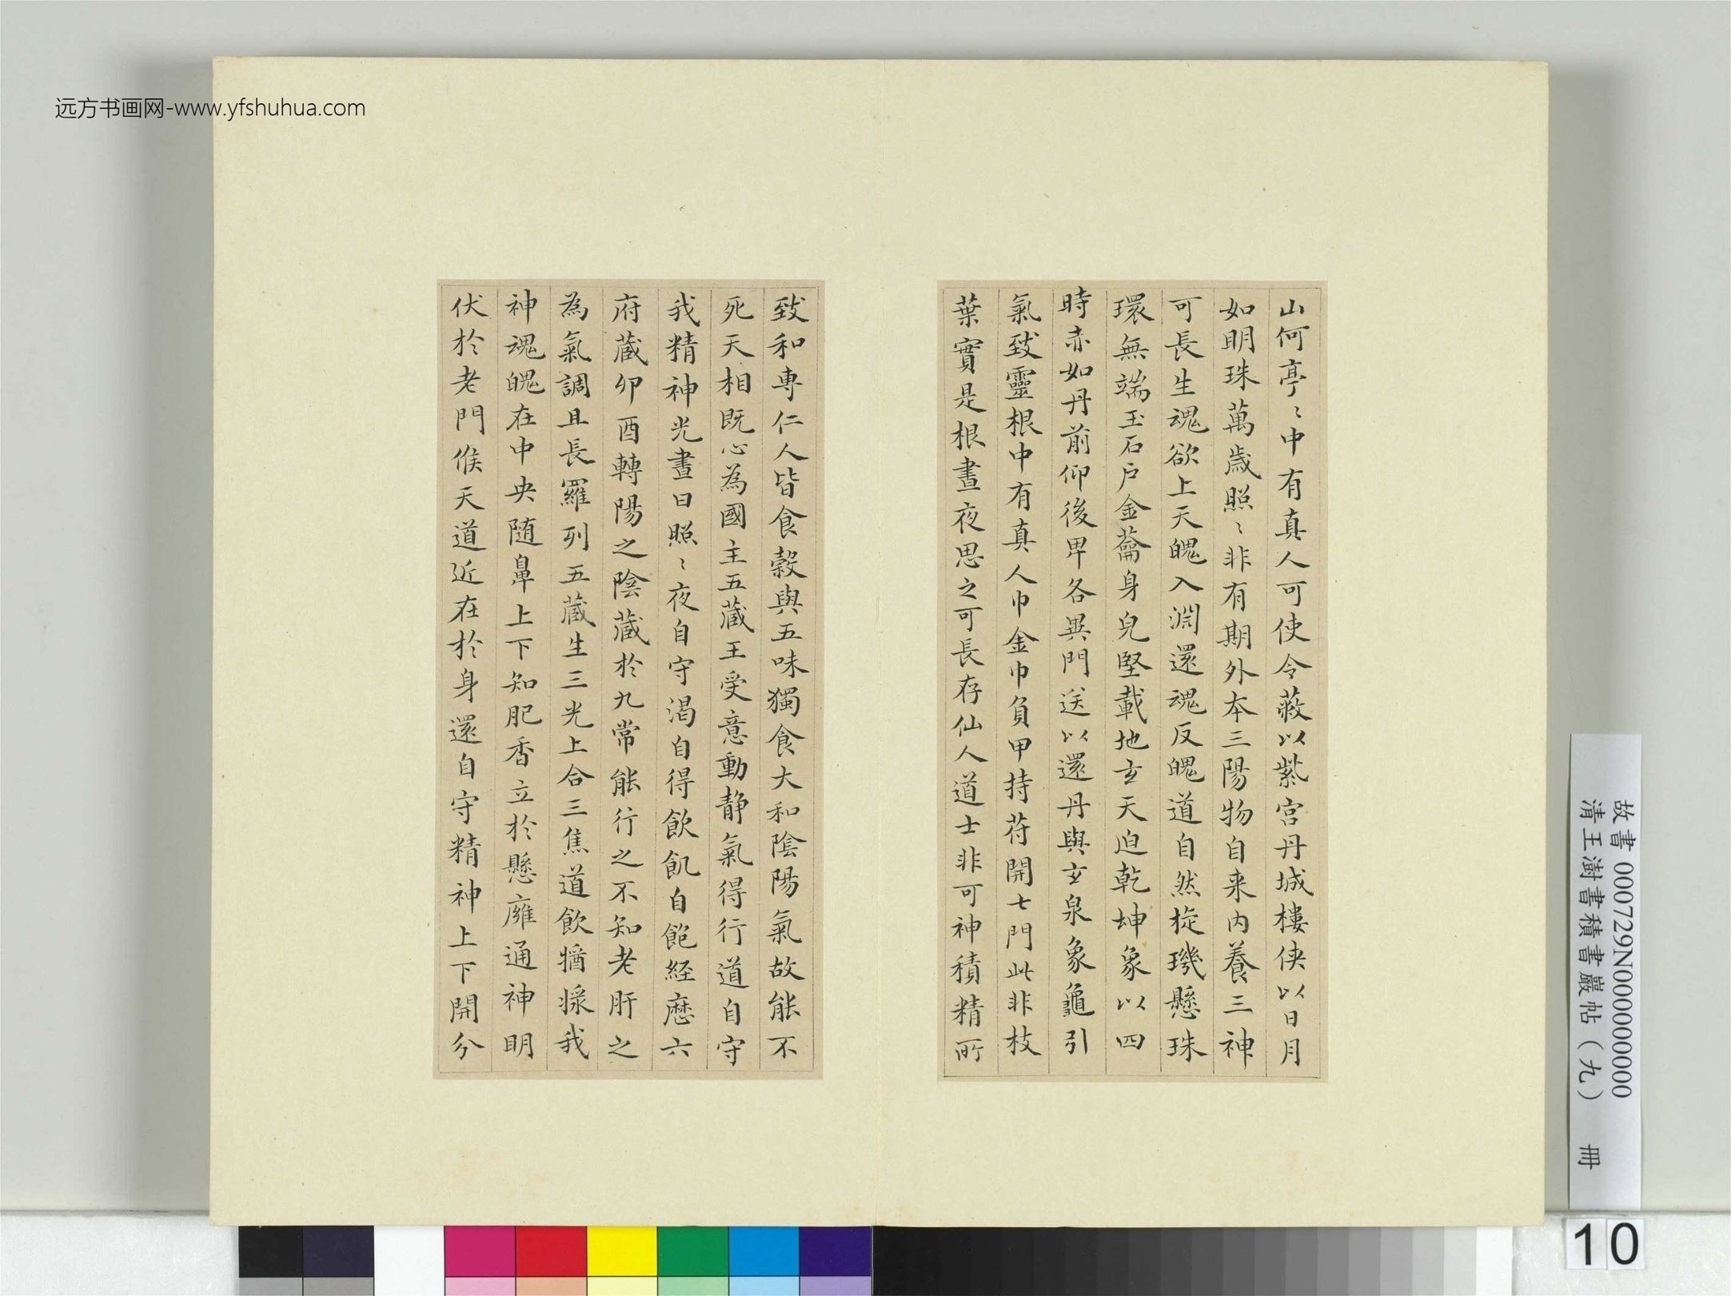 远方书画网-www.yfshuhua.com
山何亭〻中有真人可使令蔽以紫宫丹城樓侠以日月
如明珠萬歳照〻非有期外本三陽物自来内養三神
可長生魂欲上天魄入淵還魂反魄道自然旋璣懸珠
環無端玉石戸金籥身皃堅載地玄天迫乾坤象以四
時赤如丹前仰後卑各異門送以還丹與玄泉象龜引
氣致靈根中有真人巾金巾負甲持苻開七門此非枝
葉實是根晝夜思之可長存仙人道士非可神積精所
致和専仁人皆食穀與五味獨食大和陰陽氣故能不
死天相既心為國主五藏王受意動静氣得行道自守
我精神光晝日照〻夜自守渴自得飲飢自飽経歴六
府藏卯酉轉陽之陰藏於九常能行之不知老肝之
為氣調且長羅列五藏生三光上合三焦道飲猶㨾我
神魂魄在中央随鼻上下知肥香立於懸廱通神明
伏於老門候天道近在於身還自守精神上下開分
故書 000729N000000000
清王澍書積書巖帖（九） 冊
10